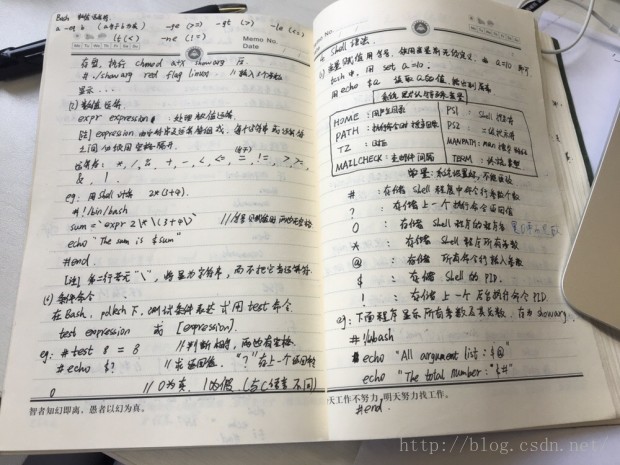 Bash 数值运算符
a -eq b (a等于b为真) -ge (>=) -gt (>) -le (<=)
-lt (<) -ne (!=)
Memo No.
Date
存盘,执行 chmod a+x showarg 后
# ./showarg red flag linux //输入3个参数
显示...
(2) 数值运算
expr expression : 处理数值运算
[注] expression 由字符串及运算符组成,每个字符串或运算符
之间必须用空格隔开.
运算符: *, /, %, +, -, <, <=, =, !=, >, >=,
&, |.
eg: 用Shell计算 2*(3+4).
#!/bin/bash
sum=`expr 2\*\(3+4\)`
echo "The sum is $sum"
#end
[注] 第二行若无"\",将显为字符串,而不把它当运算符.
条件命令
在Bash,pdksh下,测试条件表达式用test命令.
test expression 或 [expression].
eg: #test 8 = 8 //判断相等,两边有空格.
#echo $? //求返回值,"?"存上一个返回码
0 //0为真,1为假 (与C语言不同)
智者知幻即离,愚者以幻为真。
No.
Shell 语法
变量赋值用等号,使用变量时无须定义. 如 a=10 即可
tcsh中,用 set a=10.
用 echo $a 读取a的值,输出到屏幕
HOME: 用户主目录
PATH: 执行命令时搜索目录
TZ : 时区
MAILCHECK: 查邮件间隔
PS1 : Shell 提示符
PS2 : 二级提示符
MANPATH: man 搜索路径
TERM : 终端类型
# : 存储 Shell 程序中命令行参数个数
? : 存储上一个执行命令返回值
0 : 存储 Shell 程序的程序名
* : 存储 Shell 程序所有参数
@ : 存储所有命令行输入参数
$ : 存储 Shell 的 PID.
! : 存储上一个后台执行命令 PID.
eg: 下面程序显示所有参数及其总数,存为 showarg.
echo "All argument list: $@"
echo "The total number: $#"
#end.
天工作不努力,明天努力找工作。
http://blog.csdn.net/